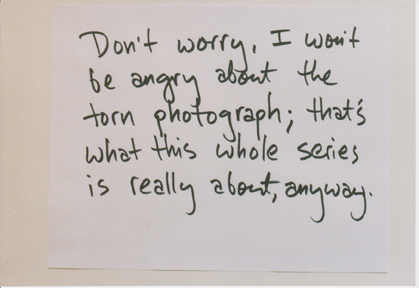 Don't worry, I won't
be angry about the
torn photograph; that's
what this whole series
is really about, anyway.